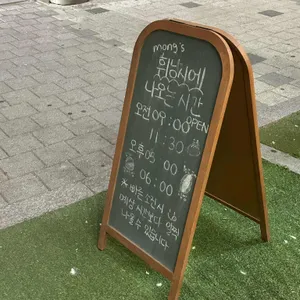 mong's
휘낭시에
나오는 시간
오전 09:00 OPEN
11:30
오후 05:00
06:00
* 빠르거나
예상 시간보다 일찍
나올 수 있습니다